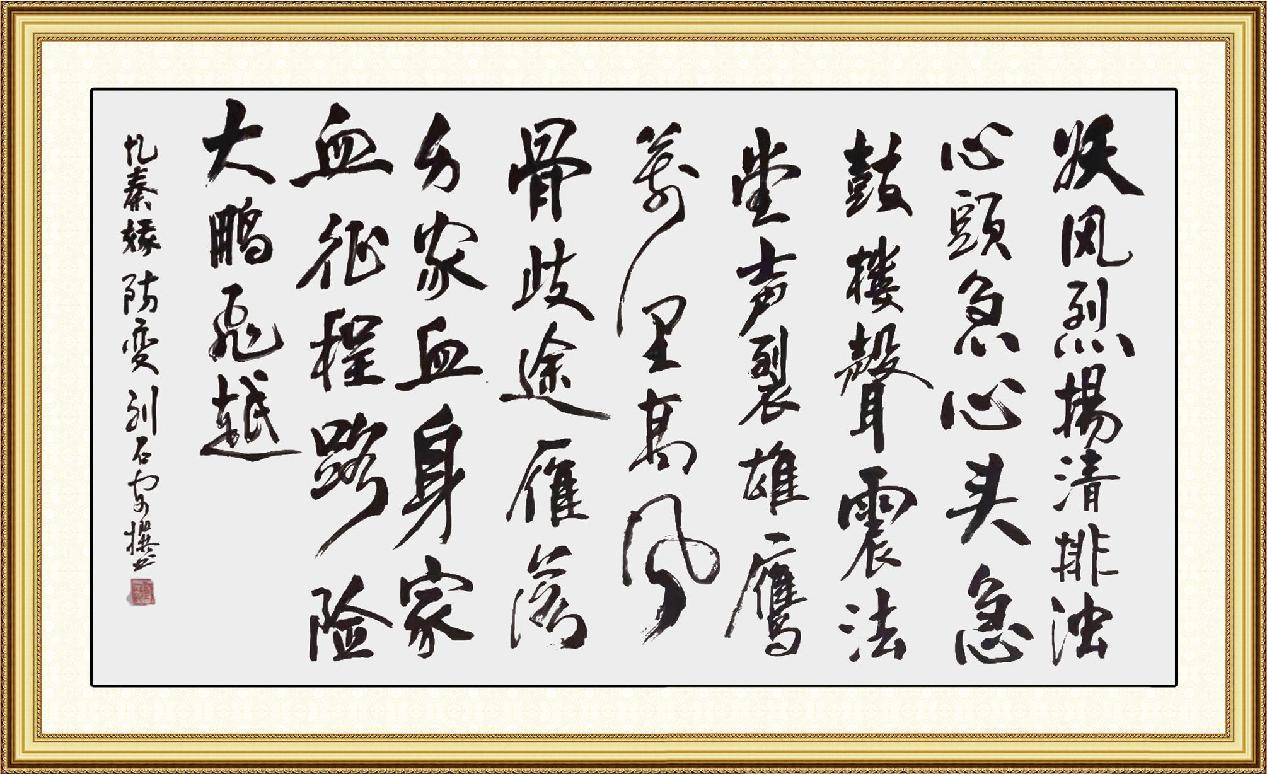 妖风烈揚清排浊
心頭急心头急
鼓樓聲震法
堂声裂雄鹰
萬里高风
骨歧途雁落
分家血身家
血征程路险
大鹏飛越
忆秦娥 防变 刘石安撰